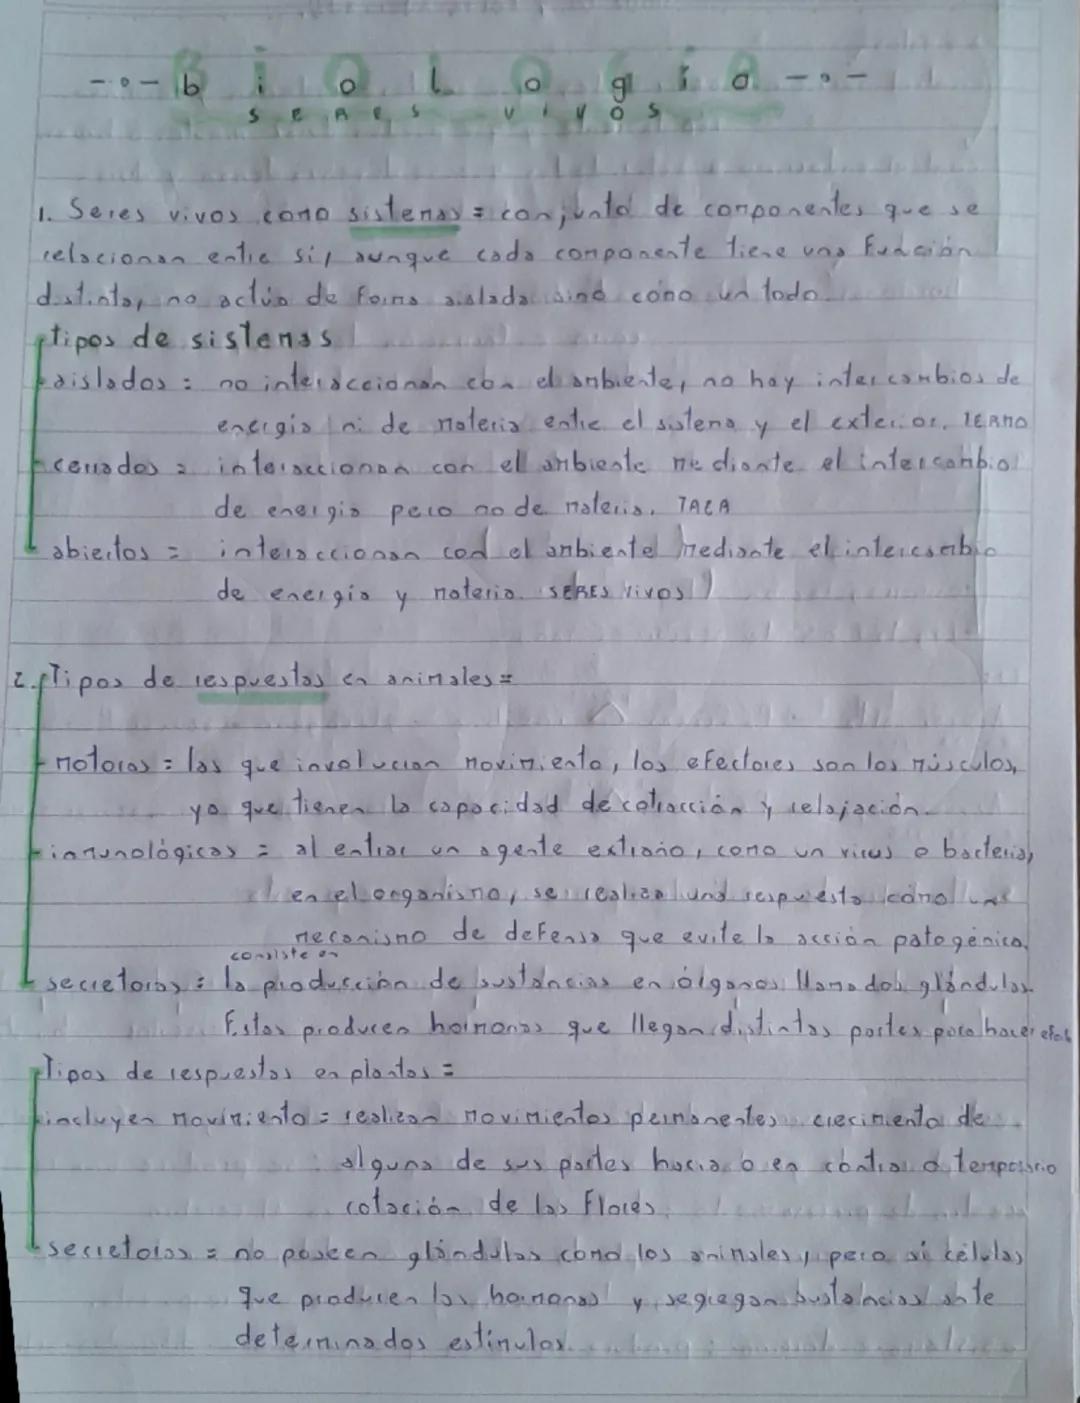 biología
SERES VIVOS
1. Seres vivos como sistemas = conjunto de componentes que se
relacionan entre sí, aunque cada componente tiene una función
distinta, no actúa de forma aislada sino como un todo.
tipos de sistemas
aislados = no interaccionan con el ambiente, no hay intercambios de
energía ni de materia entre el sistema y el exterior. TERMO
cerrados = interaccionan con el ambiente mediante el intercambio
de energía pero no de materia. TAZA
abiertos = interaccionan con el ambiente mediante el intercambio
de energía y materia. SERES VIVOS
2. Tipos de respuestas en animales =
motoras = las que involucran movimiento, los efectores son los músculos,
ya que tienen la capacidad de cotracción y relajación.
inmunológicas = al entrar un agente extraño, como un virus o bacteria,
en el organismo, se realiza una respuesta como un
mecanismo de defensa que evite la acción patogénica.
consiste en
secretoras = la producción de sustancias en órganos llamados glándulas.
Estas producen hormonas que llegan distintas partes para hacer efecto
Tipos de respuestas en plantas =
incluyen movimiento = realizan movimientos permanentes crecimiento de
alguna de sus partes hacia o en contra o temporario
rotación de las flores.
secretoras = no poseen glándulas como los animales, pero si células
que producen las hormonas y segregan sustancias ante
determinados estímulos.